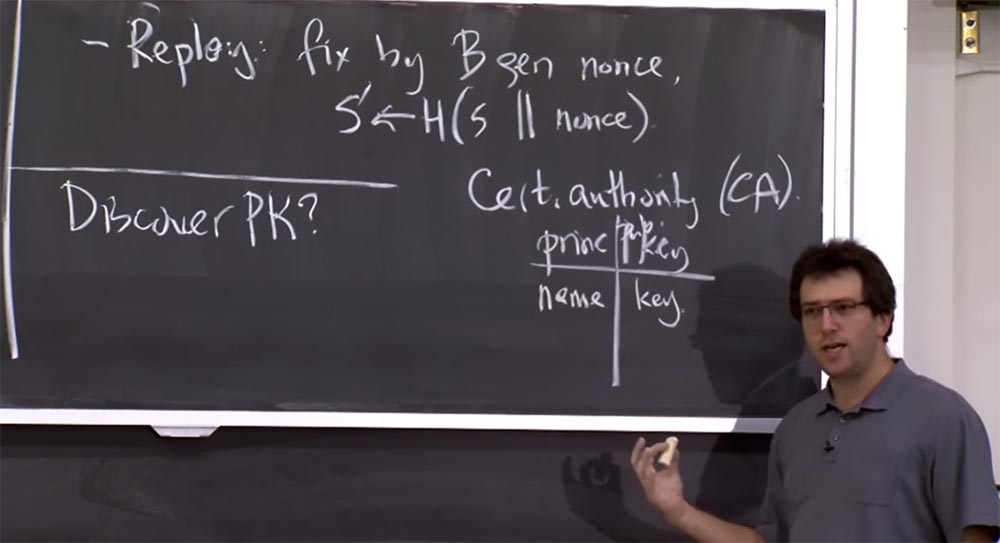 - Replay: fix by B gen nonce,
S' ← H(S || nonce).
Discover PK?
Cert. authority (CA).
princ | key
name | key.